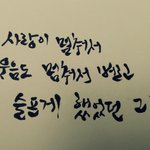 사랑이 멈춰서
웃음도 멈춰서 버린
슬프게 했었던 그